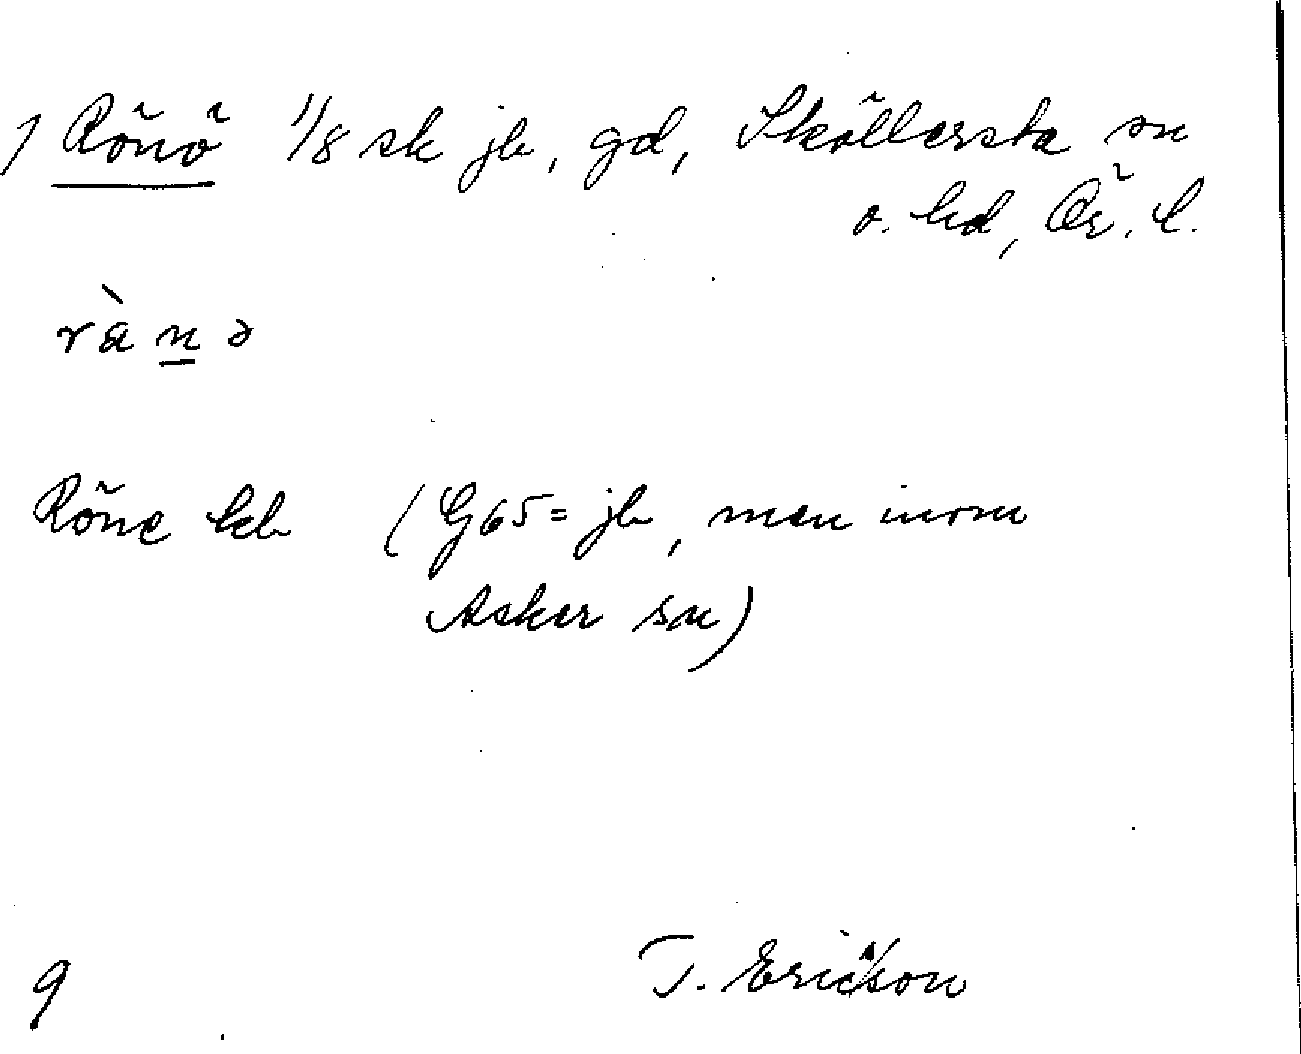 ) Rönö 1/8 sk jb, gd, Sköllersta sn
o. hd, Ör. l.
rànə
Röne kb (G65 = jb, men inom
Asker sn)
9 T. Ericson